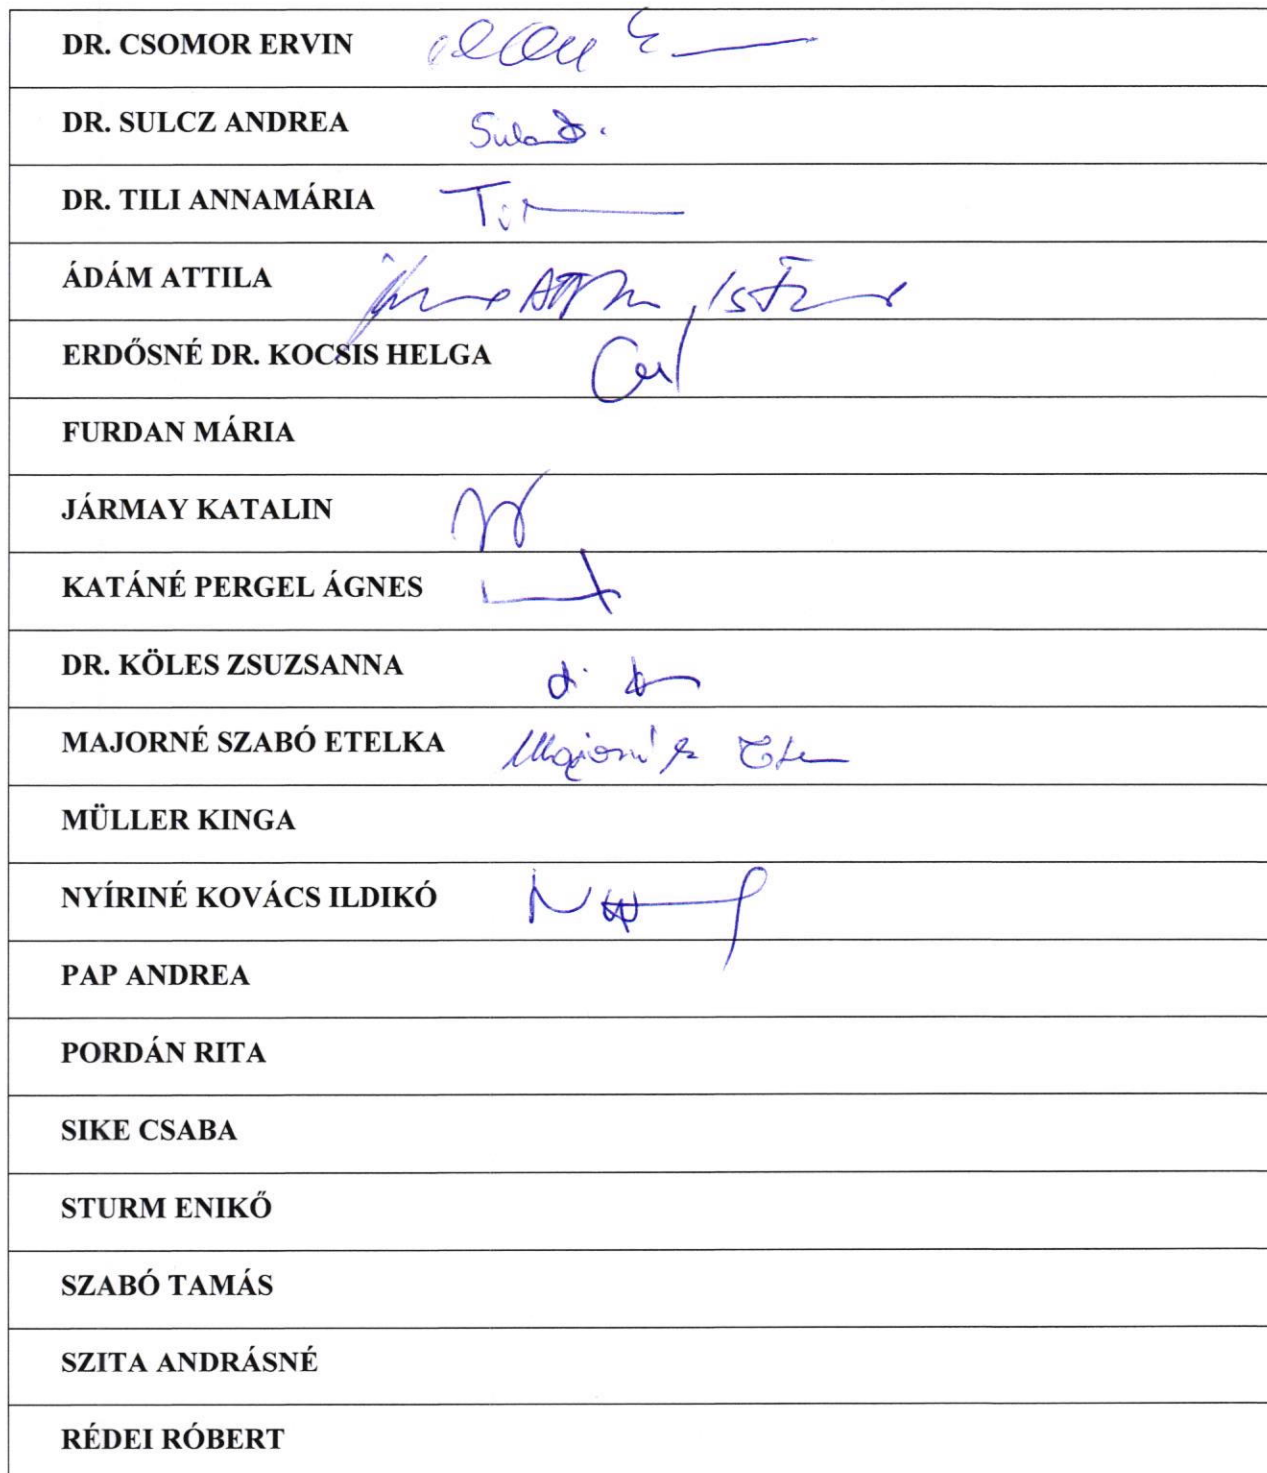 DR. CSOMOR ERVIN
DR. SULCZ ANDREA
DR. TILI ANNAMÁRIA
ÁDÁM ATTILA
ERDŐSNÉ DR. KOCSIS HELGA
FURDAN MÁRIA
JÁRMAY KATALIN
KATÁNÉ PERGEL ÁGNES
DR. KÖLES ZSUZSANNA
MAJORNÉ SZABÓ ETELKA
MÜLLER KINGA
NYÍRINÉ KOVÁCS ILDIKÓ
PAP ANDREA
PORDÁN RITA
SIKE CSABA
STURM ENIKŐ
SZABÓ TAMÁS
SZITA ANDRÁSNÉ
RÉDEI RÓBERT